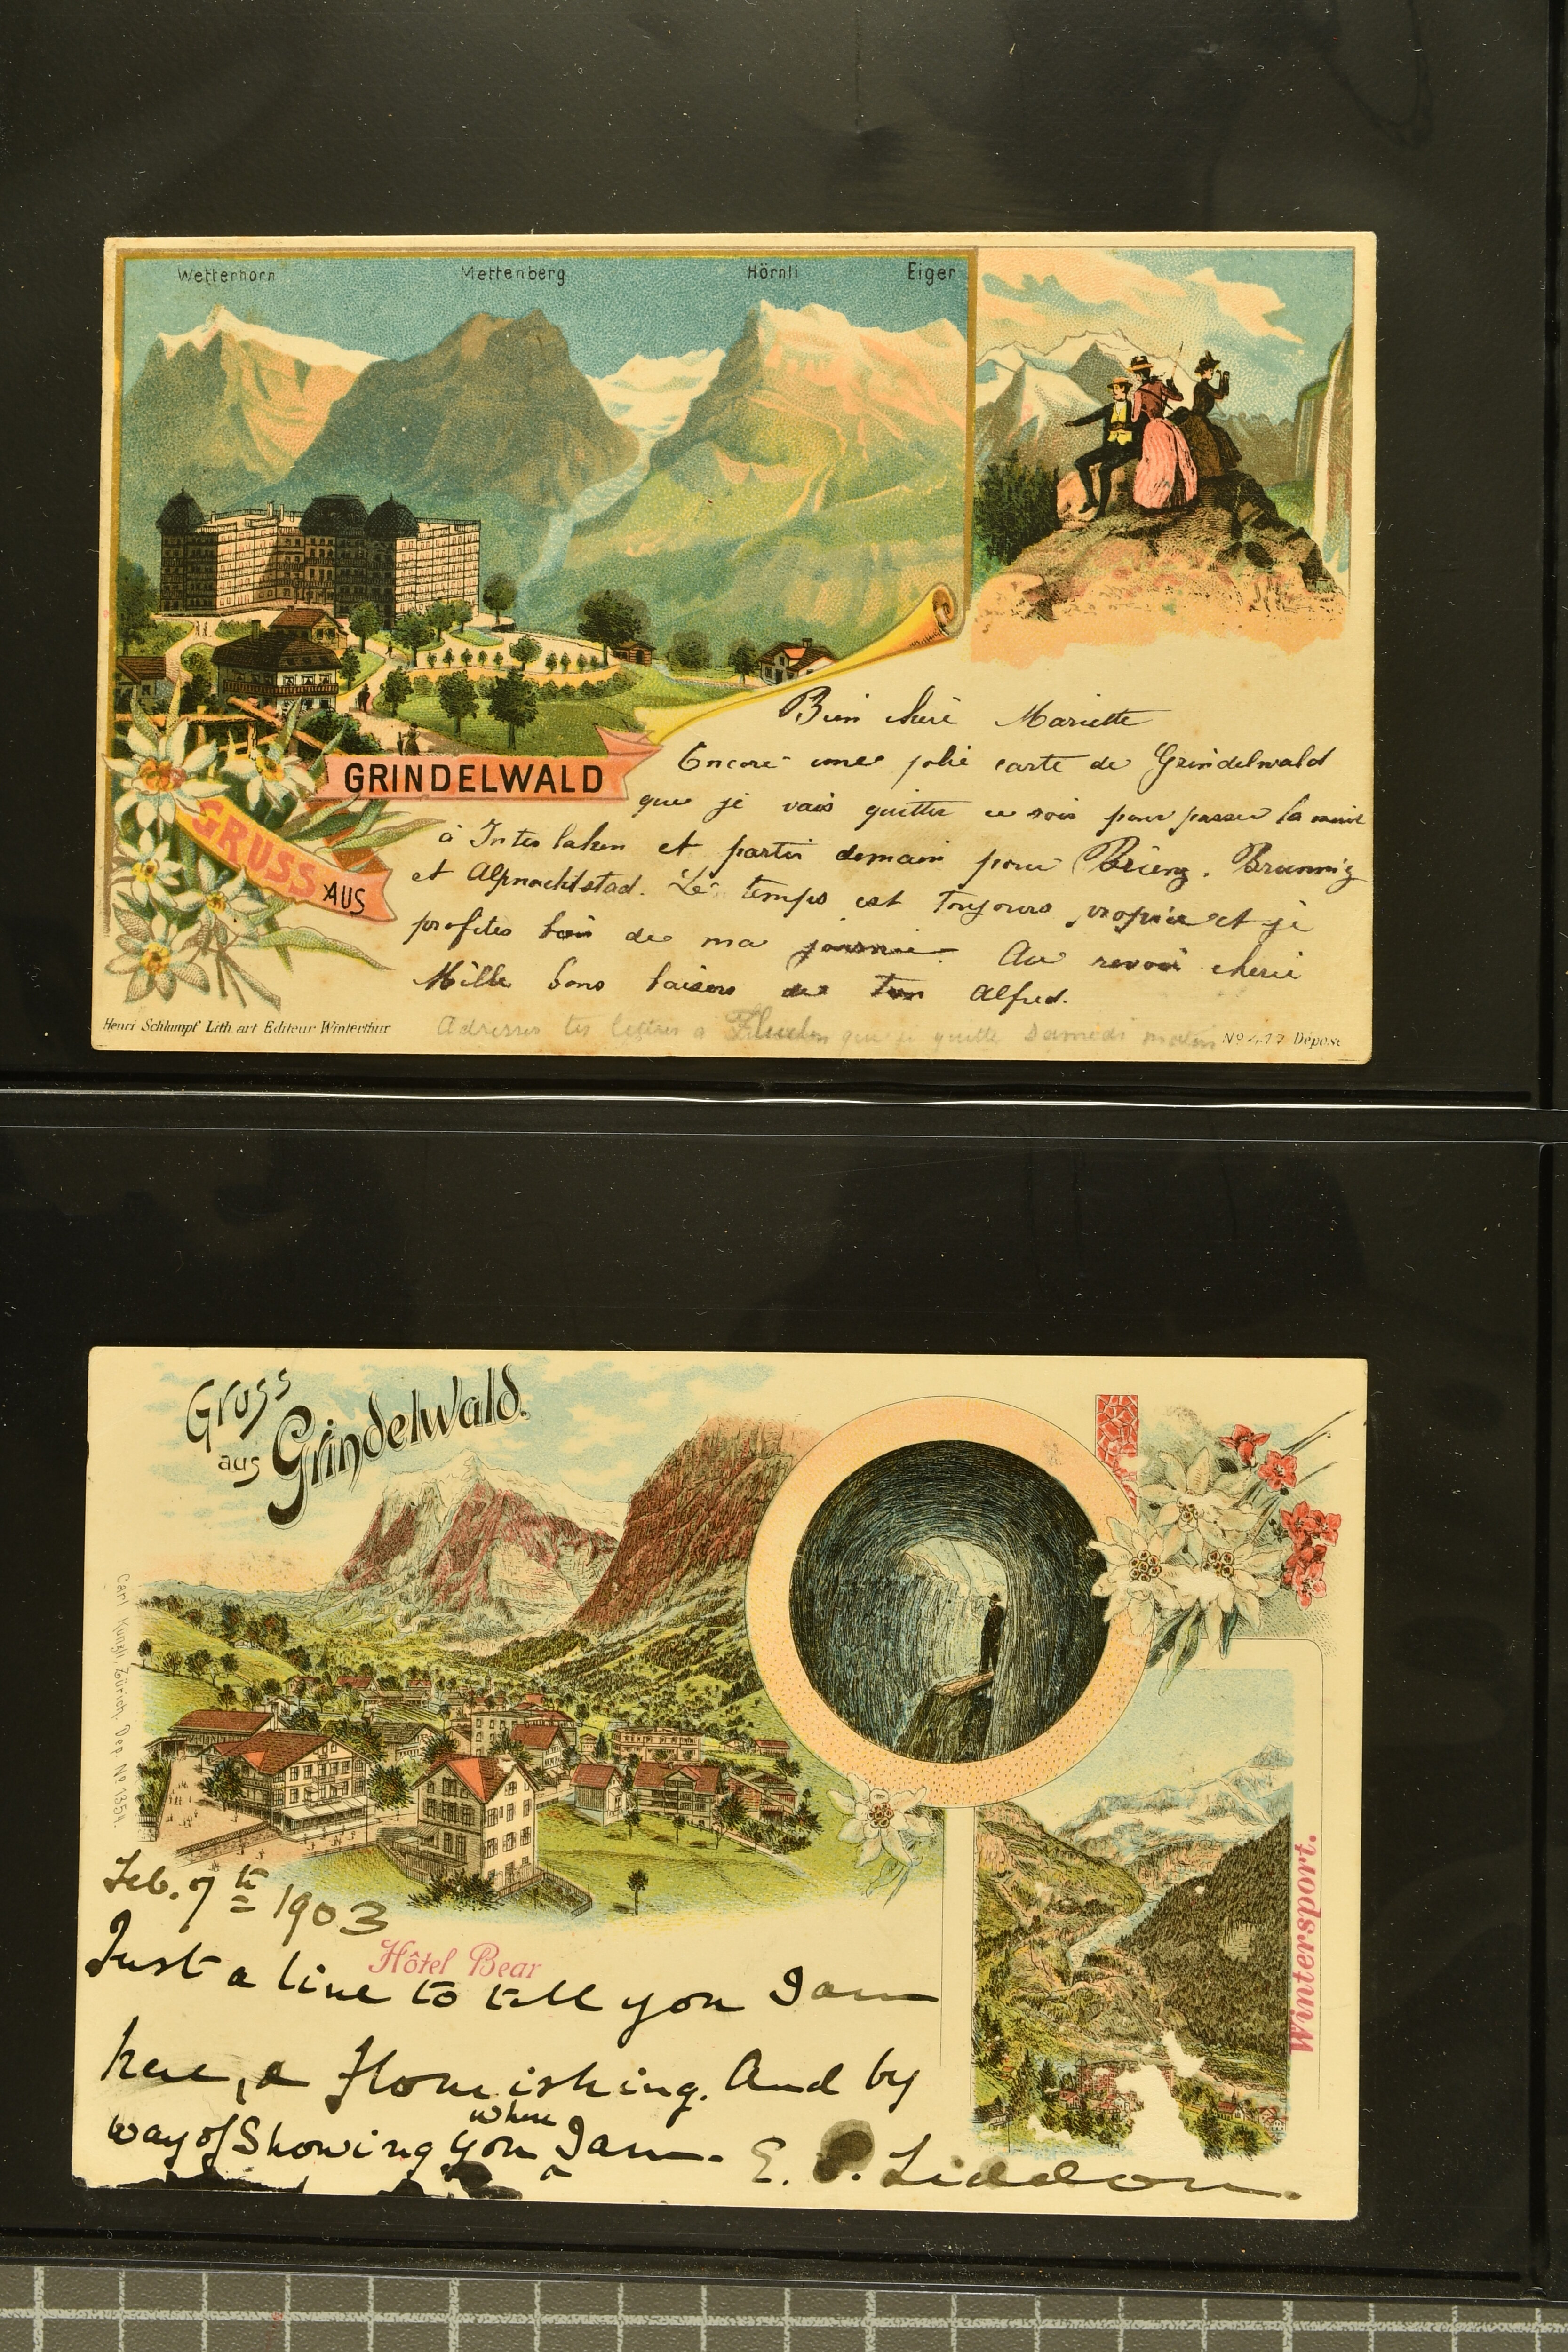 Wetterhorn Mettenberg Hörnli Eiger
GRINDELWALD
GRUSS AUS
Bien cheré Mariette
Encore une jolie carte de Grindelwald
que je vais quitter ce soir pour passer la nuit
à Interlaken et partir demain pour Brienz. Brunnig
et Alpnachtstad. Le temps est toujours propice et je
profites bien de ma journée. Au revoir cherie
Mille bons baisers de ton Alfred.
Adresses tes lettres à Fluelen que je quitte samedi matin
Henri Schlumpf Lith. art Editeur Winterthur
Nº 477 Déposé
Gruss
aus Grindelwald.
Carl Künzli, Zürich, Dep. Nº 1354
Feb. 7th 1903
Hôtel Bear
Just a line to tell you I am
here, a flourishing. And by
way of Showing you where I am. E. Liddon.
Wintersport.